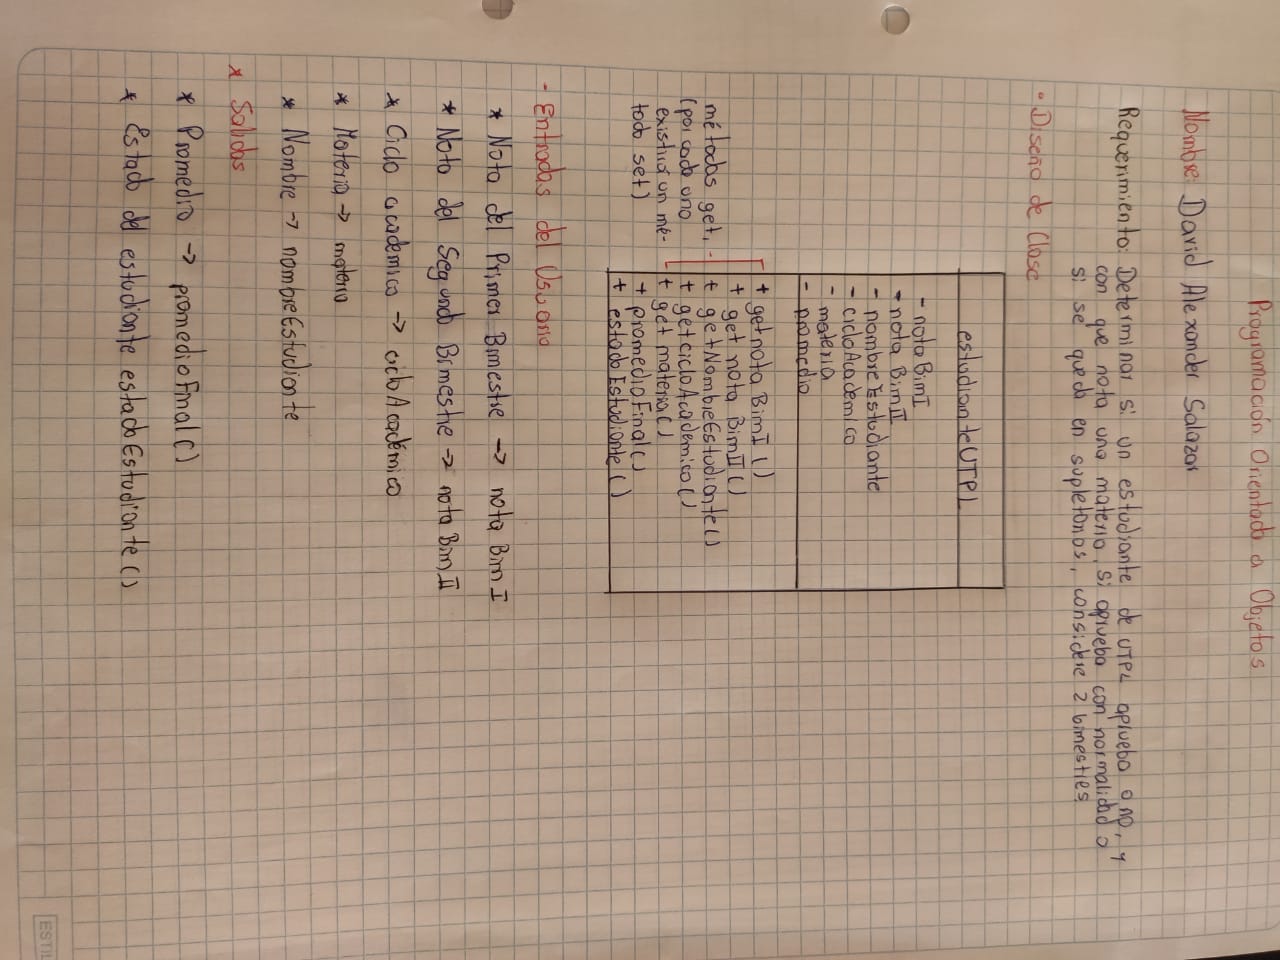 Programación Orientado a Objetos
Nombre: David Alexander Salazar
Requerimiento: Determinar si un estudiante de UTPL aprueba o no, y
con que nota una materia, si aprueba con normalidad o
si se queda en supletorios, considere 2 bimestres
• Diseño de Clase
estudianteUTPL
- nota BimI
- nota BimII
- nombreEstudiante
- cicloAcademico
- materia
- promedio
+ getnota BimI ()
+ get nota BimII ()
+ getNombreEstudiante()
+ getcicloAcademico()
+ get materia()
+ promedioFinal()
+ estadoEstudiante()
métodos get,
(por cada uno
existirá un mé-
todo set)
- Entradas del Usuario
* Nota del Primer Bimestre -> nota Bim I
* Nota del Segundo Bimestre -> nota Bim II
* Ciclo academico -> cicloAcadémico
* Materia -> materia
* Nombre -> nombreEstudiante
* Salidas
* Promedio -> promedioFinal()
* Estado del estudiante estadoEstudiante()
ESTIL